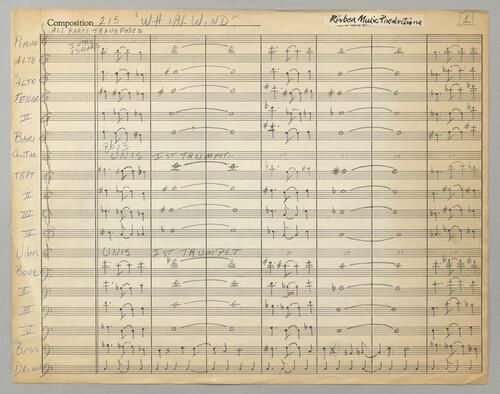 Composition 215 "WHIRLWIND" Risbon Music Productions 1
ALL PARTS TRANSPOSED
PIANO
INTRO
ALTO
ALTO
TENOR
II
BARI
Bb13
GUITAR UNIS 1ST TRUMPET
TRPT
II
III
IV
Vibes UNIS 1ST TRUMPET
BONE
II
III
IV
BASS
DRUMS